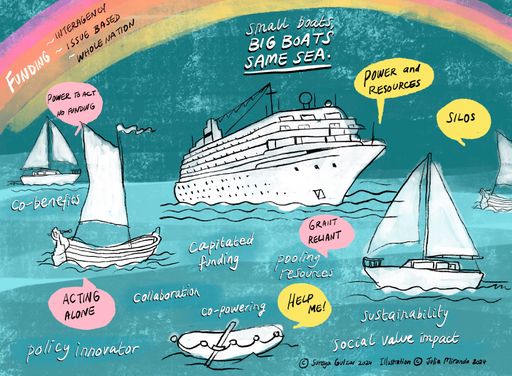 FUNDING
~ INTERAGENCY
~ ISSUE BASED
~ WHOLE NATION
small boats,
BIG BOATS
SAME SEA.
POWER and
RESOURCES
SILOS
POWER TO ACT
NO FUNDING
co-benefits
GRANT
RELIANT
Capitated
funding
pooling
resources
ACTING
ALONE
Collaboration
co-powering
HELP
ME!
sustainability
policy innovator
social value impact
© Soraya Gutzar 2024 Illustration © Julia Miranda 2024